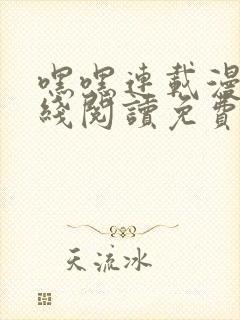 嘿嘿連載漫
綫閱讀免費
天流冰